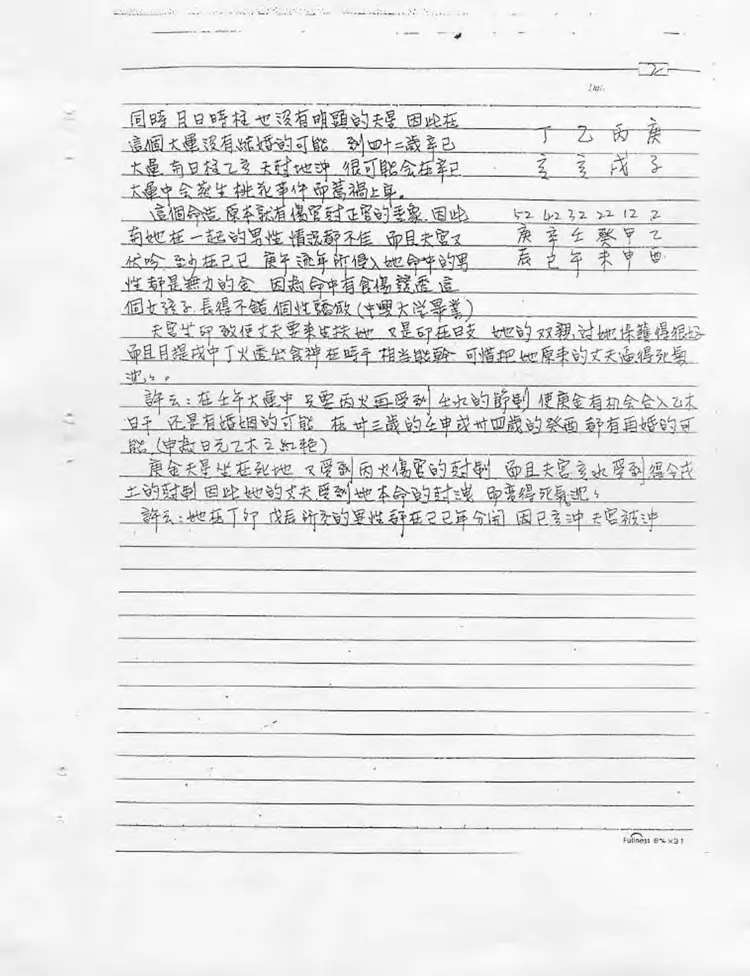 2
Date.
同時 月日時柱 也沒有明顯的夫星 因此在
這個大運沒有結婚的可能 到四十二歲辛巳
大運 與日柱乙亥 天尅地沖 很可能會在辛巳
大運中會發生桃花事件 而惹禍上身。
這個命造 原本就有傷官尅正官的 因此
與她在一起的男性 情況都不佳 而且夫宮又
伏吟 至少在己巳 庚午 流年所侵入她命中的男
性 都是無力的金 因為命中有食傷 這
個女孩子 長得不錯 個性驕傲 (中興大学畢業)
丁 乙 丙 庚
亥 亥 戌 子
52 42 32 22 12 2
庚 辛 壬 癸 甲 乙
辰 巳 午 未 申 酉
夫宮坐印 致使丈夫要來生扶她 又是印在日支 她的双親 对她保護得很好
而且月提戌中丁火透出食神在時干 相當能幹 可惜把她原來的丈夫逼得死氣
沈々。
許云：在壬午大運中 只要丙火再受到壬水的節制 使庚金有机会合入乙木
日干 还是有婚姻的可能 在卅三歲的壬申或卅四歲的癸酉 都有再婚的可
能 (申為日元乙木之紅艷)
庚金夫星坐在死地 又受到丙火傷官的尅制 而且夫宮亥水受到得令戌
土的尅制 因此她的丈夫受到她本命的尅洩 而变得死氣沈々
許云：她在丁卯 戊辰 所交的異性 都在己巳年分開 因巳亥沖 夫宮被沖
Fullness 8⅝ X 31